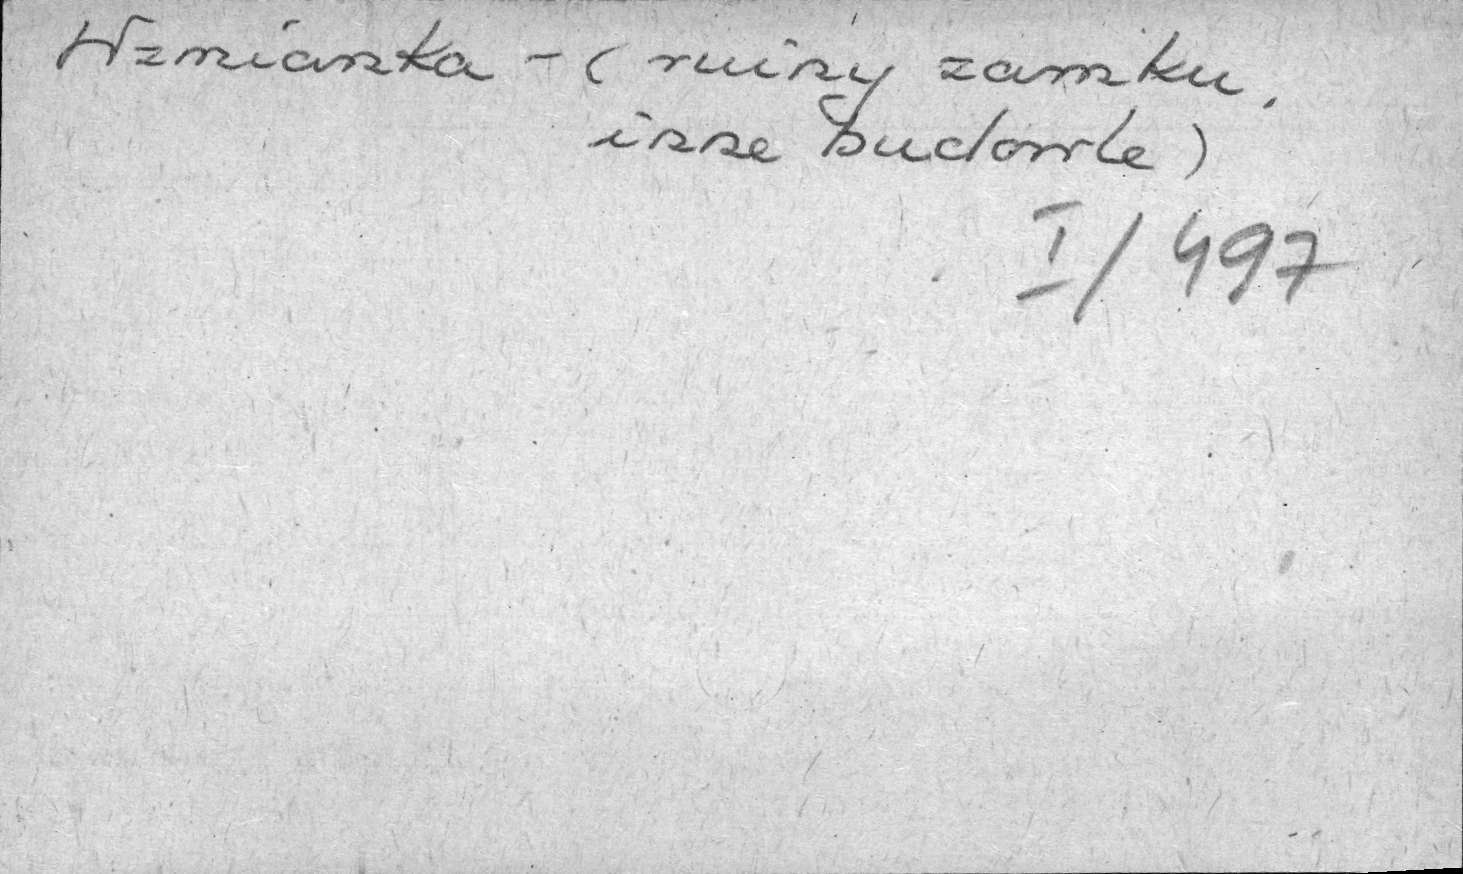 Wzmianka - (ruiny zamku,
inne budowle)
I/497